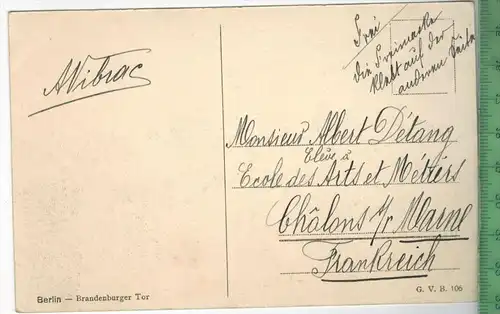 Frei
die Freimarke
klebt auf der
anderen Seite
AVibrac
Monsieur Albert Détang
Elève à
Ecole des Arts et Métiers
Châlons s/r Marne
Frankreich
Berlin — Brandenburger Tor
G. V. B. 106